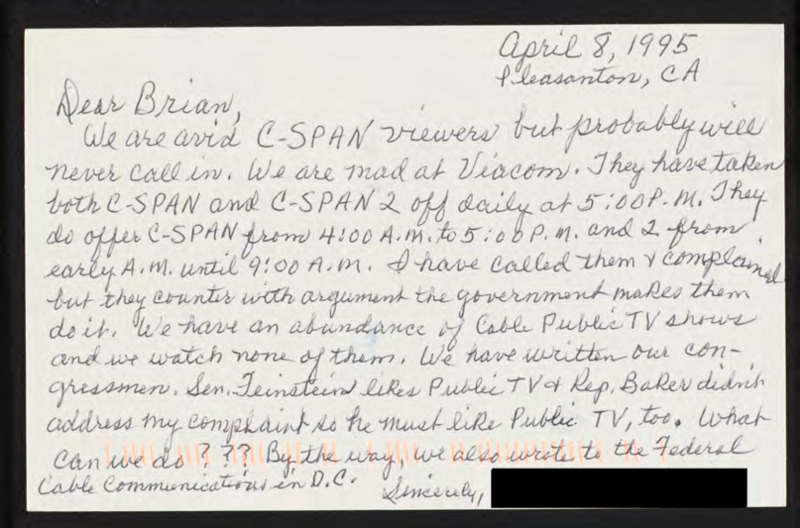 April 8, 1995
Pleasanton, CA
Dear Brian,
We are avid C-SPAN viewers but probably will
never call in. We are mad at Viacom. They have taken
both C-SPAN and C-SPAN 2 off daily at 5:00 P.M. They
do offer C-SPAN from 4:00 A.M. to 5:00 P.M. and 2 from
early A.M. until 9:00 A.M. I have called them & complained
but they counter with argument the government makes them
do it. We have an abundance of Cable Public TV shows
and we watch none of them. We have written our con-
gressmen. Sen. Feinstein likes Public TV & Rep. Baker didn't
address my complaint so he must like Public TV, too. What
can we do? ?? By the way, we also wrote to the Federal
Cable Communications in D.C.
Sincerely,